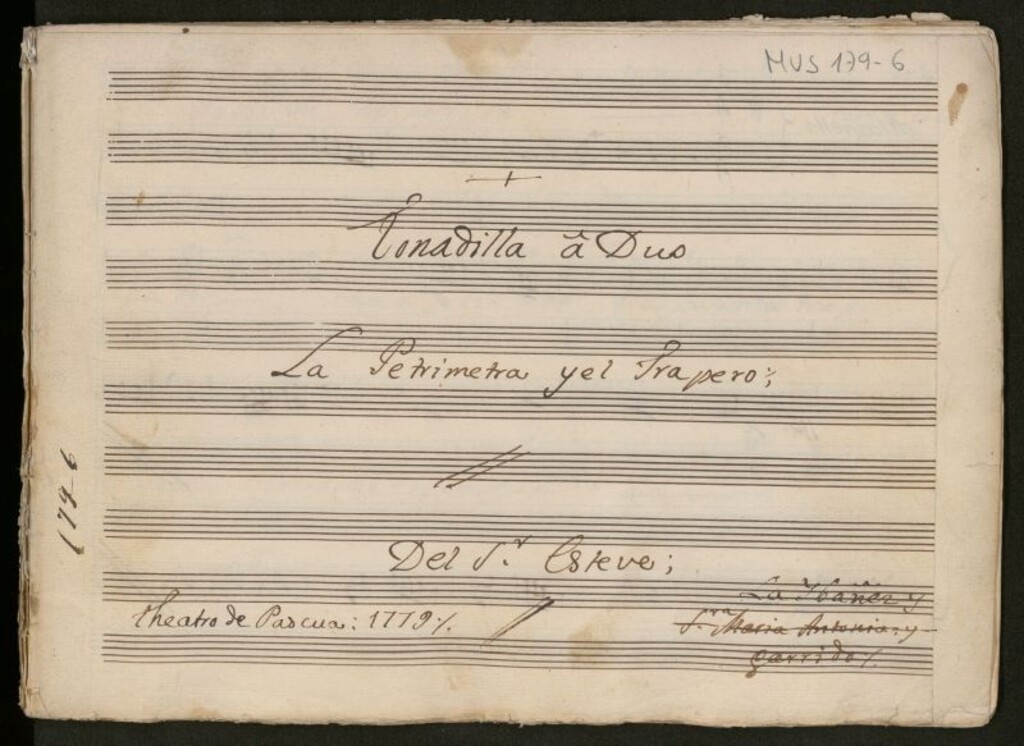 MUS 179-6
Tonadilla â Duo
La Petrimetra y el Trapero;
Del S.r Esteve;
La Ybañez y
theatro de Pascua: 1779%.
S.ra Maria Antonia. y
garrido%.
179-6